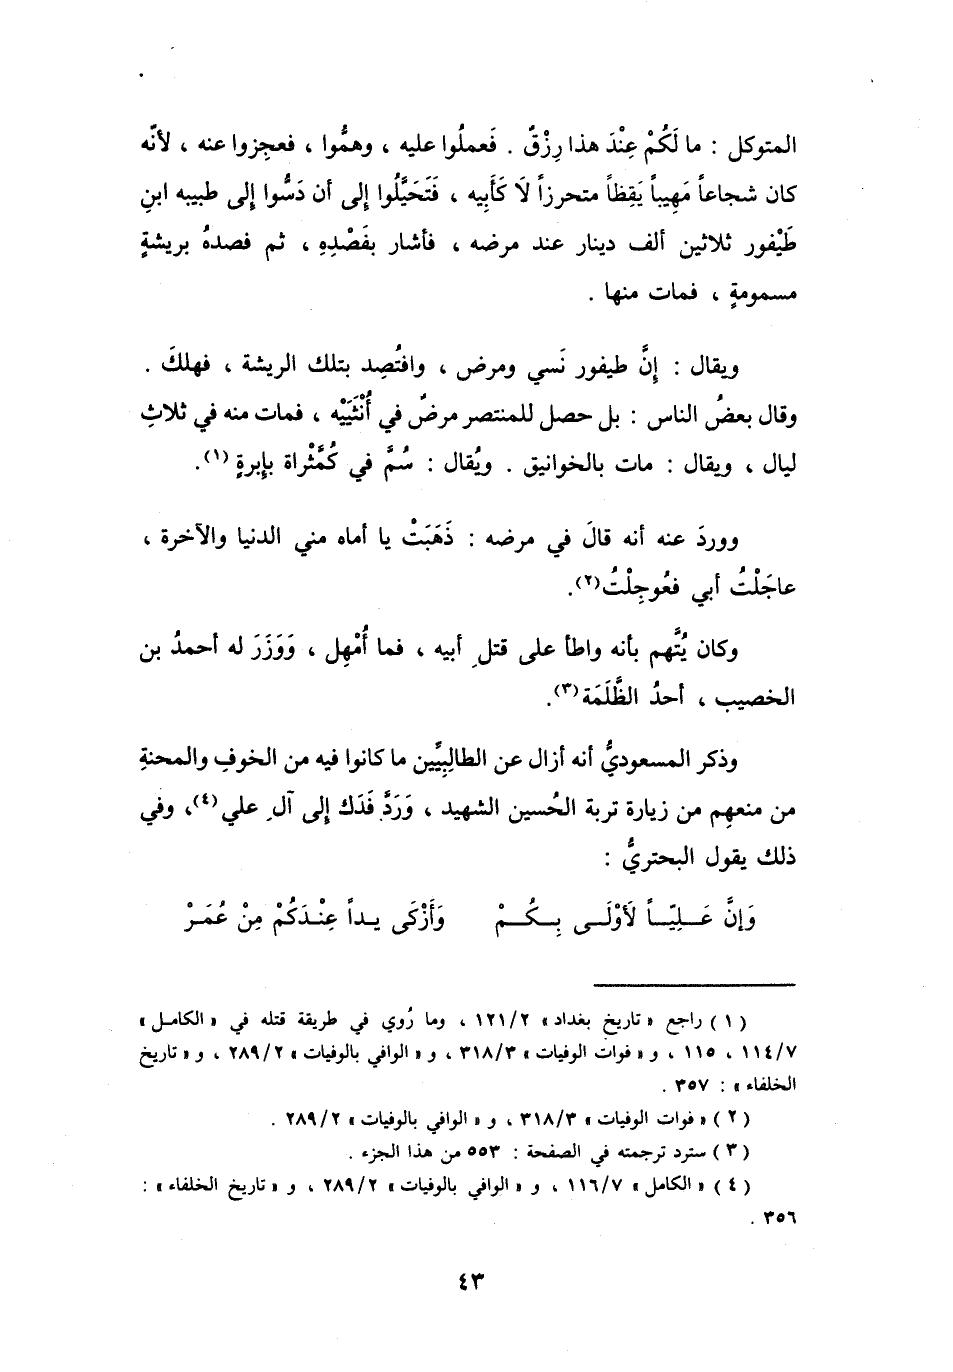 المتوكل : ما لَكُمْ عِنْدَ هذا رِزْقٌ . فَعملُوا عليه ، وهمُّوا ، فعجِزوا عنه ، لأنّه
كان شجاعاً مَهِيباً يَقِظاً متحرزاً لَا كَأَبِيه ، فَتَحَيَّلُوا إلى أن دَسُّوا إلى طبيبه ابنِ
طَيْفور ثلاثين ألف دينار عند مرضه ، فأشار بفَصْدِهِ ، ثم فصدهُ بريشةٍ
مسمومةٍ ، فمات منها .
ويقال : إنَّ طيفور نَسي ومرض ، وافتُصِد بتلك الريشة ، فهلكَ .
وقال بعضُ الناس : بل حصل للمنتصر مرضٌ في أُنْثَيَيْه ، فمات منه في ثلاثِ
ليال ، ويقال : مات بالخوانيق . ويُقال : سُمَّ في كُمَّثْراة بإبرةٍ (١).
ووردَ عنه أنه قالَ في مرضه : ذَهَبَتْ يا أماه مني الدنيا والآخرة ،
عاجَلْتُ أبي فعُوجِلْتُ(٢).
وكان يُتَّهم بأنه واطأ على قتلِ أبيه ، فما أُمْهِل ، وَوَزَرَ له أحمدُ بن
الخصيب ، أحدُ الظَّلَمَة(٣).
وذكر المسعوديُّ أنه أزال عن الطالِبِيَّين ما كانوا فيه من الخوفِ والمحنةِ
من منعهِم من زيارة تربة الحُسين الشهيد ، وَرَدَّ فَدَك إلى آلِ علي(٤)، وفي
ذلك يقول البحتريُّ :
وَإنَّ عَـلِيّـاً لَأوْلَـى بِـكُـمْ وَأَزْكَى يـداً عِنْـدَكُمْ مِنْ عُمَـرْ
(١) راجع « تاريخ بغداد » ١٢١/٢ ، وما رُوي في طريقة قتله في « الكامل »
١١٤/٧ ، ١١٥ ، و « فوات الوفيات » ٣١٨/٣ ، و « الوافي بالوفيات » ٢٨٩/٢ ، و « تاريخ
الخلفاء » : ٣٥٧ .
(٢) « فوات الوفيات » ٣١٨/٣ ، و « الوافي بالوفيات » ٢٨٩/٢ .
(٣) سترد ترجمته في الصفحة : ٥٥٣ من هذا الجزء .
(٤) « الكامل » ١١٦/٧ ، و « الوافي بالوفيات » ٢٨٩/٢ ، و « تاريخ الخلفاء » :
٣٥٦ .
٤٣